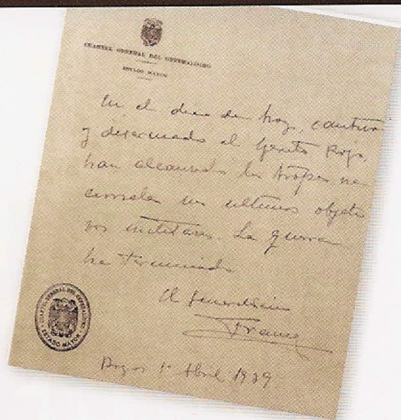 CUARTEL GENERAL DEL GENERALISIMO
ESTADO MAYOR
En el dia de hoy, cautivo
y desarmado el Ejercito Rojo,
han alcanzado las tropas na-
cionales sus ultimos objeti
vos militares. La guerra
ha terminado
El Generalisimo
Franco
CUARTEL GENERAL DEL GENERALISIMO
ESTADO MAYOR
Burgos 1º Abril 1939